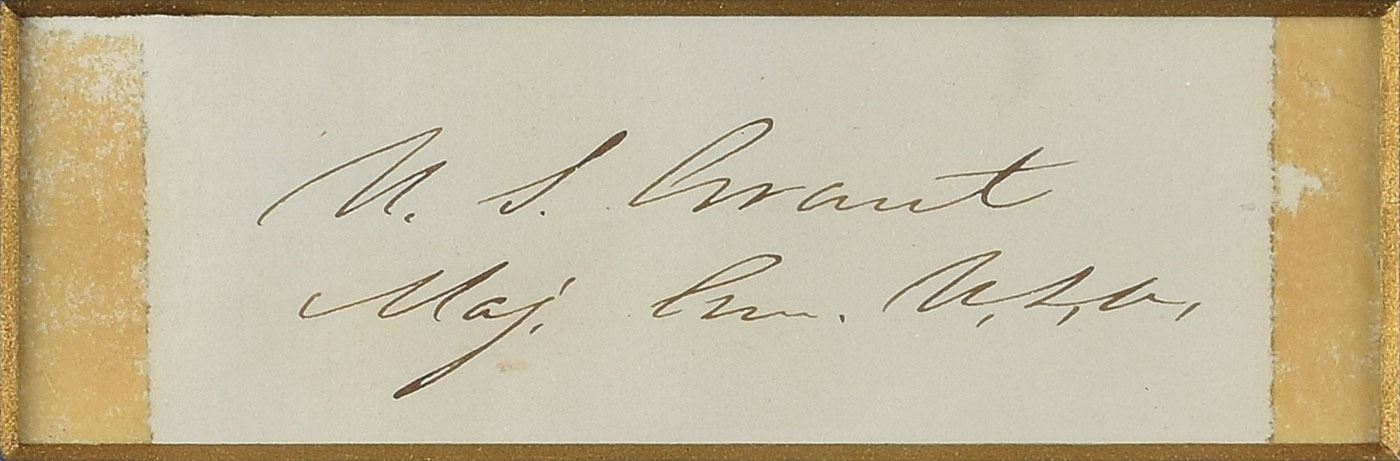 U. S. Grant
Maj. Gen. U, S, A,